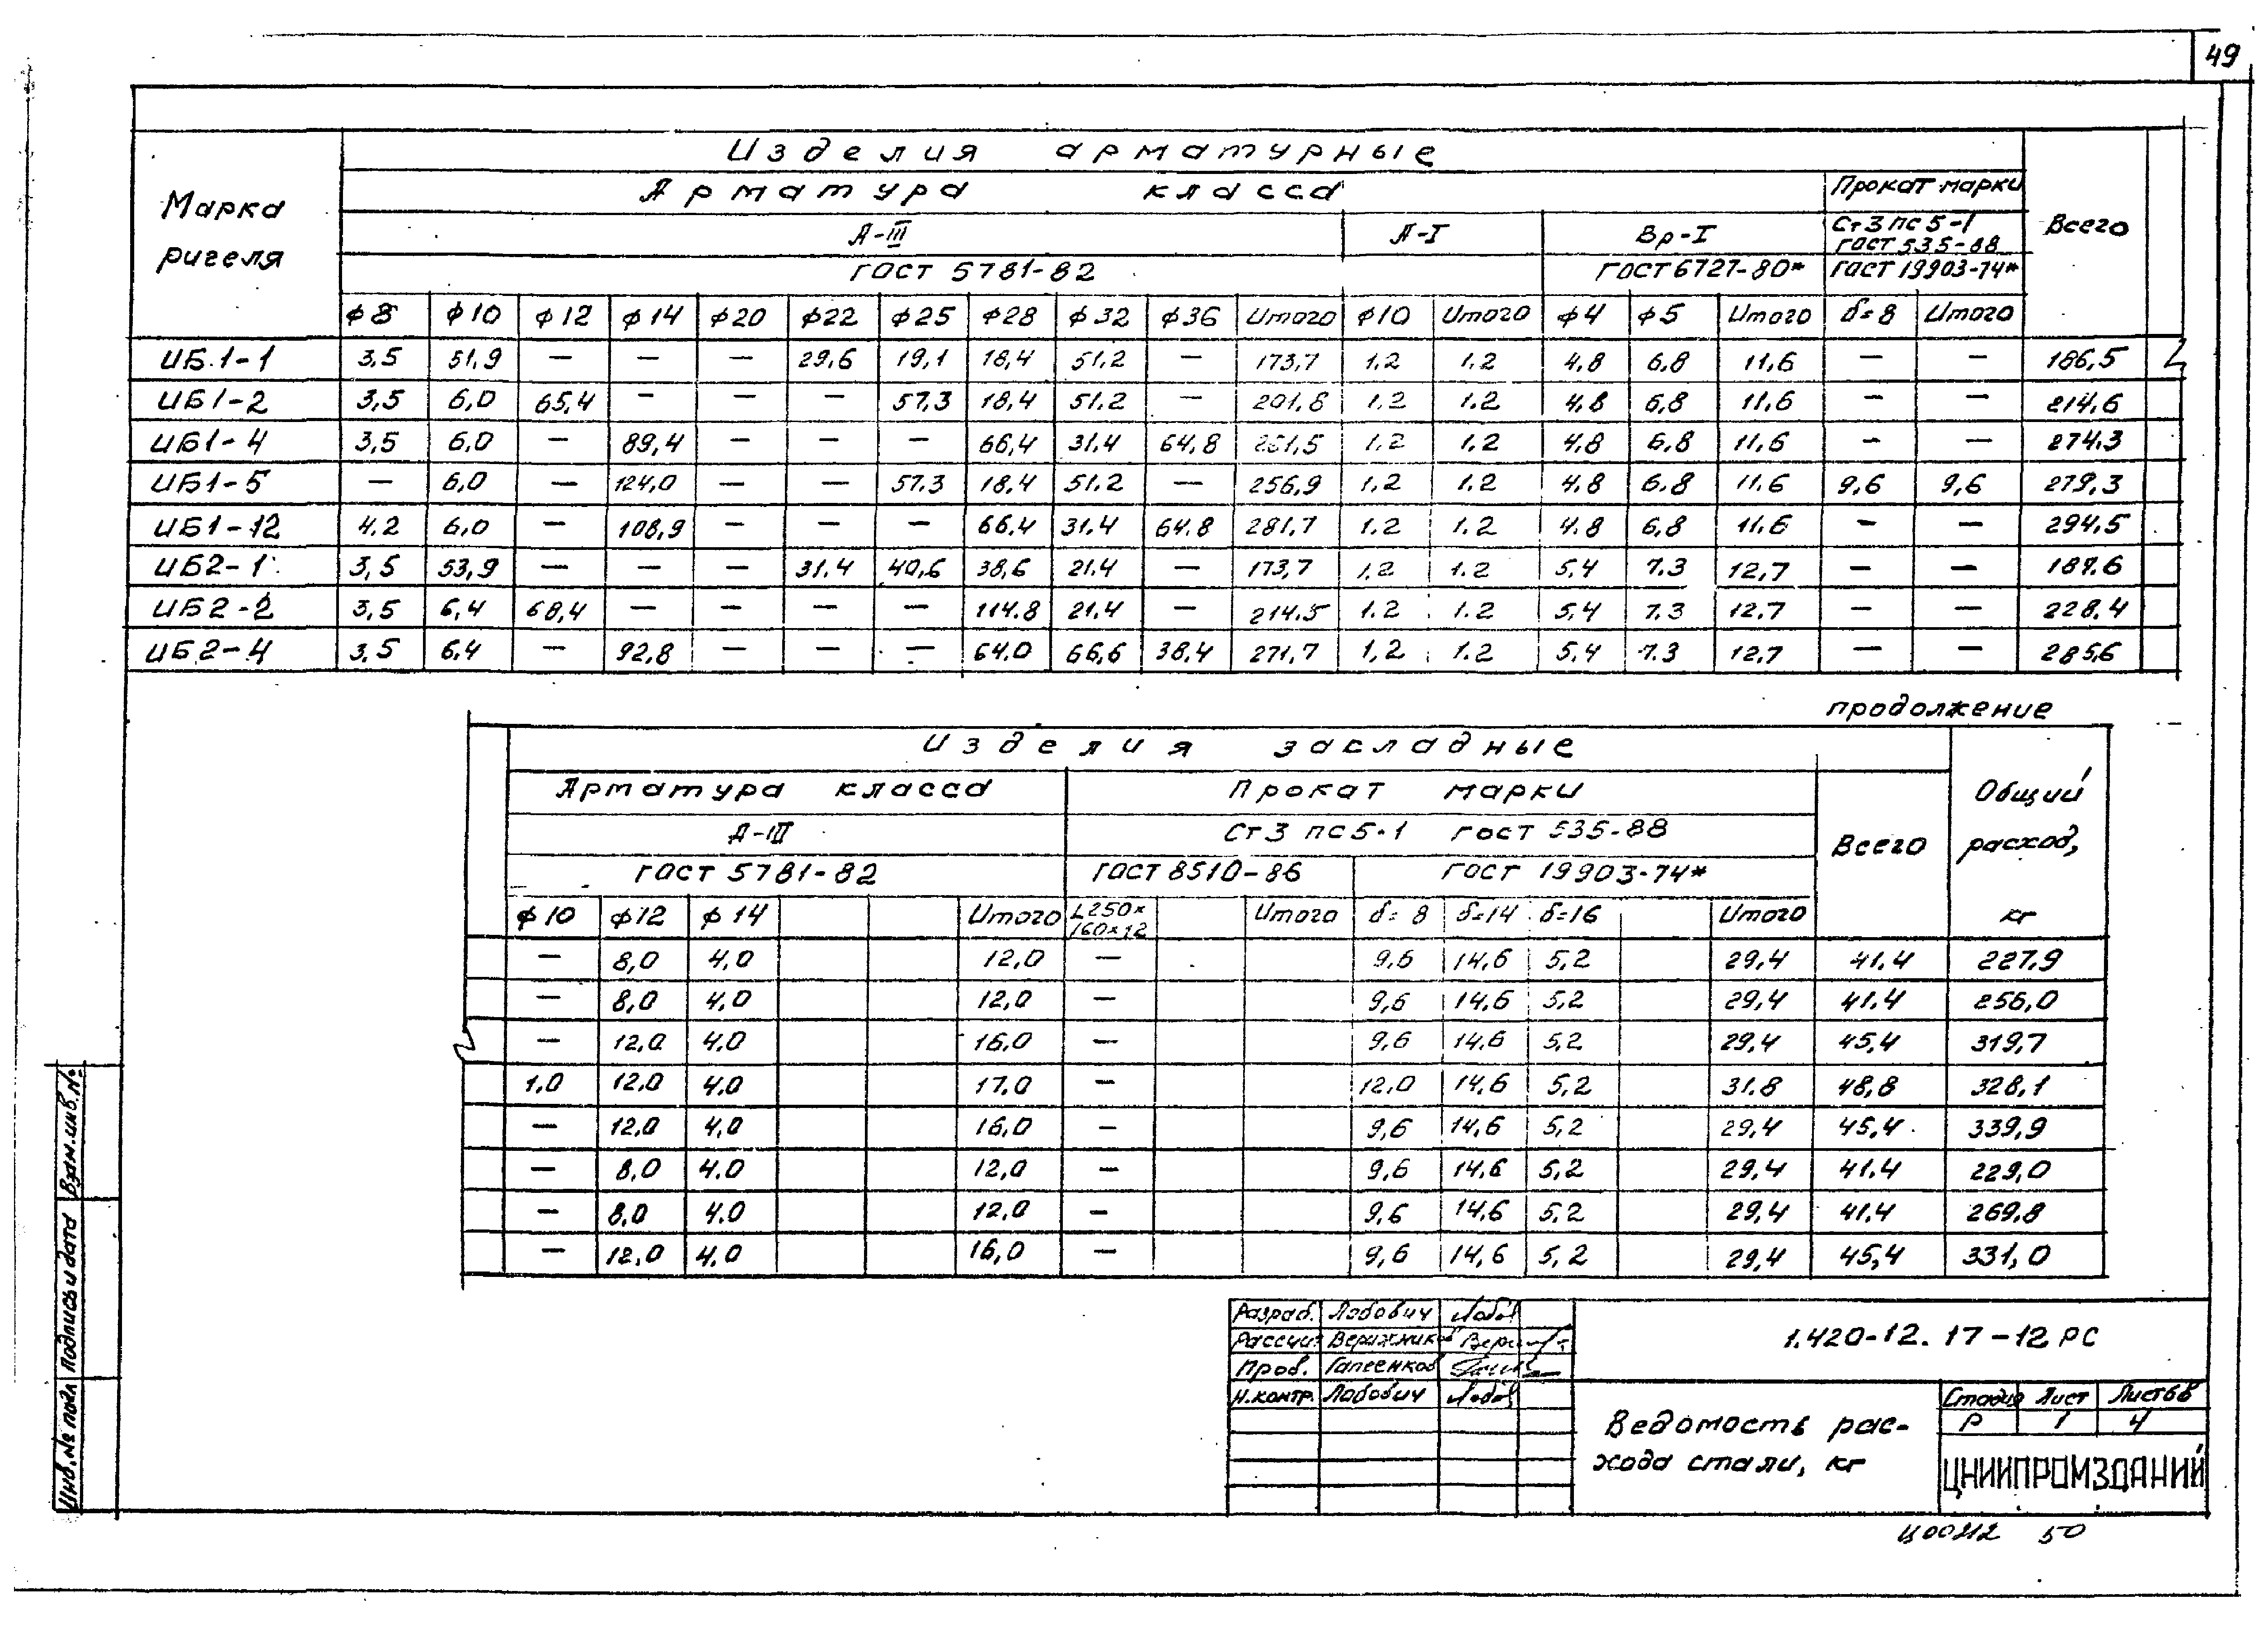 49
Изделия арматурные
Марка ригеля
Арматура класса
Прокат марки
Всего
А-III
А-I
Вр-I
Ст3пс5-1
ГОСТ 535-88
ГОСТ 5781-82
ГОСТ 6727-80*
ГОСТ 19903-74*
ф8 ф10 ф12 ф14 ф20 ф22 ф25 ф28 ф32 ф36 Итого ф10 Итого ф4 ф5 Итого δ=8 Итого
ИБ.1-1 3,5 51,9 — — — 29,6 19,1 18,4 51,2 — 173,7 1,2 1,2 4,8 6,8 11,6 — — 186,5
ИБ1-2 3,5 6,0 65,4 — — — 57,3 18,4 51,2 — 201,8 1,2 1,2 4,8 6,8 11,6 — — 214,6
ИБ1-4 3,5 6,0 — 89,4 — — — 66,4 31,4 64,8 261,5 1,2 1,2 4,8 6,8 11,6 — — 274,3
ИБ1-5 — 6,0 — 124,0 — — 57,3 18,4 51,2 — 256,9 1,2 1.2 4,8 6,8 11,6 9,6 9,6 279,3
ИБ1-12 4,2 6,0 — 108,9 — — — 66,4 31,4 64,8 281,7 1,2 1.2 4.8 6,8 11,6 — — 294,5
ИБ2-1 3,5 53,9 — — — 31,4 40,6 38,6 21.4 — 173,7 1,2 1.2 5,4 7.3 12,7 — — 187.6
ИБ2-2 3,5 6,4 68,4 — — — — 114.8 21.4 — 214.5 1.2 1.2 5,4 7.3 12.7 — — 228,4
ИБ2-4 3.5 6.4 — 92,8 — — — 64.0 66,6 38,4 271,7 1,2 1.2 5,4 7.3 12,7 — — 285,6
продолжение
Изделия закладные
Общий расход, кг
Арматура класса
Прокат марки
Всего
А-III
Ст3пс5-1 ГОСТ 535-88
ГОСТ 5781-82
ГОСТ 8510-86
ГОСТ 19903-74*
ф10 ф12 ф14 Итого L250×160×12 Итого δ=8 δ=14 δ=16 Итого
— 8,0 4,0 12,0 — 9,6 14,6 5,2 29,4 41,4 227,9
— 8,0 4,0 12,0 — 9,6 14,6 5,2 29,4 41,4 256,0
— 12,0 4,0 16,0 — 9,6 14,6 5,2 29,4 45,4 319,7
1,0 12,0 4,0 17,0 — 12,0 14,6 5,2 31.8 48,8 328,1
— 12,0 4,0 16,0 — 9,6 14,6 5,2 29,4 45,4 339,9
— 8,0 4.0 12,0 — 9,6 14,6 5,2 29,4 41.4 229,0
— 8,0 4.0 12,0 — 9,6 14,6 5,2 29,4 41.4 269,8
— 12,0 4,0 16,0 — 9,6 14,6 5,2 29,4 45,4 331,0
Разраб. Лобович
Рассчит. Верижников
Пров. Гапеенков
Н.контр. Лобович
1.420-12. 17-12 РС
Ведомость рас-
хода стали, кг
Стадия Лист Листов
Р 1 4
ЦНИИПРОМЗДАНИЙ
Ц00212 50
Инв.№ подл Подпись и дата Взам.инв.№